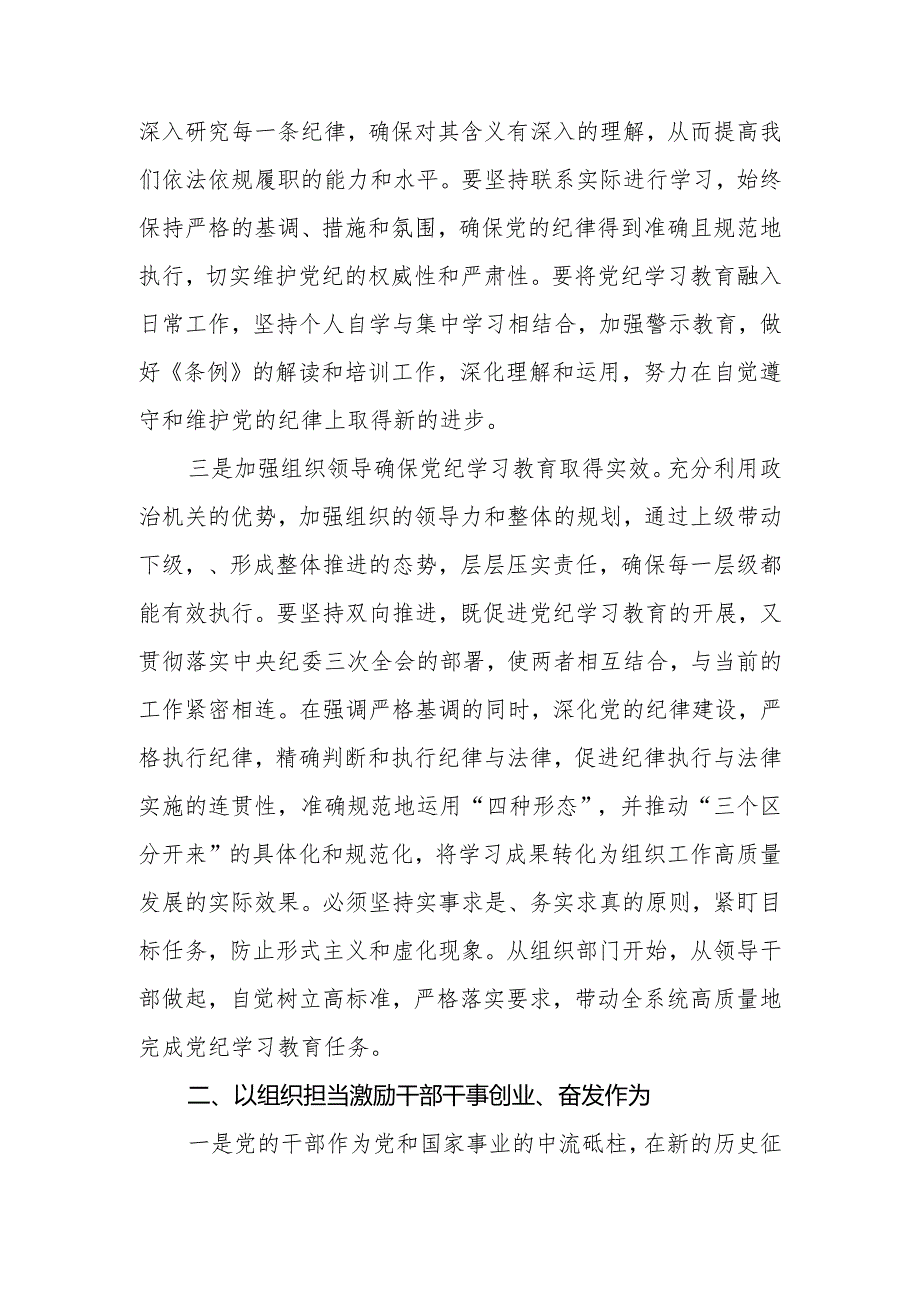 深入研究每一条纪律，确保对其含义有深入的理解，从而提高我
们依法依规履职的能力和水平。要坚持联系实际进行学习，始终
保持严格的基调、措施和氛围，确保党的纪律得到准确且规范地
执行，切实维护党纪的权威性和严肃性。要将党纪学习教育融入
日常工作，坚持个人自学与集中学习相结合，加强警示教育，做
好《条例》的解读和培训工作，深化理解和运用，努力在自觉遵
守和维护党的纪律上取得新的进步。
三是加强组织领导确保党纪学习教育取得实效。充分利用政
治机关的优势，加强组织的领导力和整体的规划，通过上级带动
下级，、形成整体推进的态势，层层压实责任，确保每一层级都
能有效执行。要坚持双向推进，既促进党纪学习教育的开展，又
贯彻落实中央纪委三次全会的部署，使两者相互结合，与当前的
工作紧密相连。在强调严格基调的同时，深化党的纪律建设，严
格执行纪律，精确判断和执行纪律与法律，促进纪律执行与法律
实施的连贯性，准确规范地运用“四种形态”，并推动“三个区
分开来”的具体化和规范化，将学习成果转化为组织工作高质量
发展的实际效果。必须坚持实事求是、务实求真的原则，紧盯目
标任务，防止形式主义和虚化现象。从组织部门开始，从领导干
部做起，自觉树立高标准，严格落实要求，带动全系统高质量地
完成党纪学习教育任务。
二、以组织担当激励干部干事创业、奋发作为
一是党的干部作为党和国家事业的中流砥柱，在新的历史征